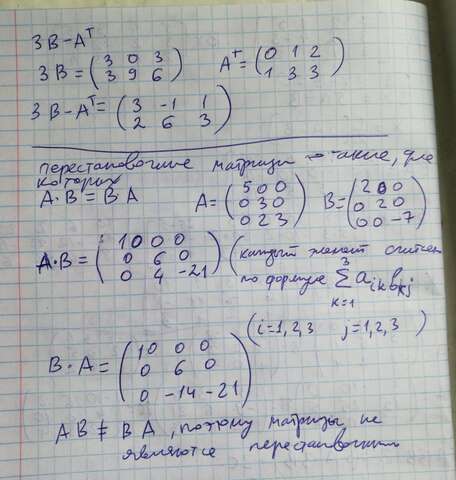 3B-Aᵀ
3B = (3 0 3   Aᵀ = (0 1 2
3 9 6)   1 3 3)
3B-Aᵀ = (3 -1 1
2 6 3)
перестановочные матрицы - такие, для
которых
A·B = B A   A = (5 0 0   B = (2 0 0
0 3 0   0 2 0
0 2 3)   0 0 -7)
A·B = (10 0 0   (каждый элемент считаем
0 6 0   по формуле ∑ aᵢₖbₖⱼ
0 4 -21)   3 k=1
(i=1,2,3   j=1,2,3)
B·A = (10 0 0
0 6 0
0 -14 -21)
AB ≠ BA, поэтому матрицы не
являются перестановочными